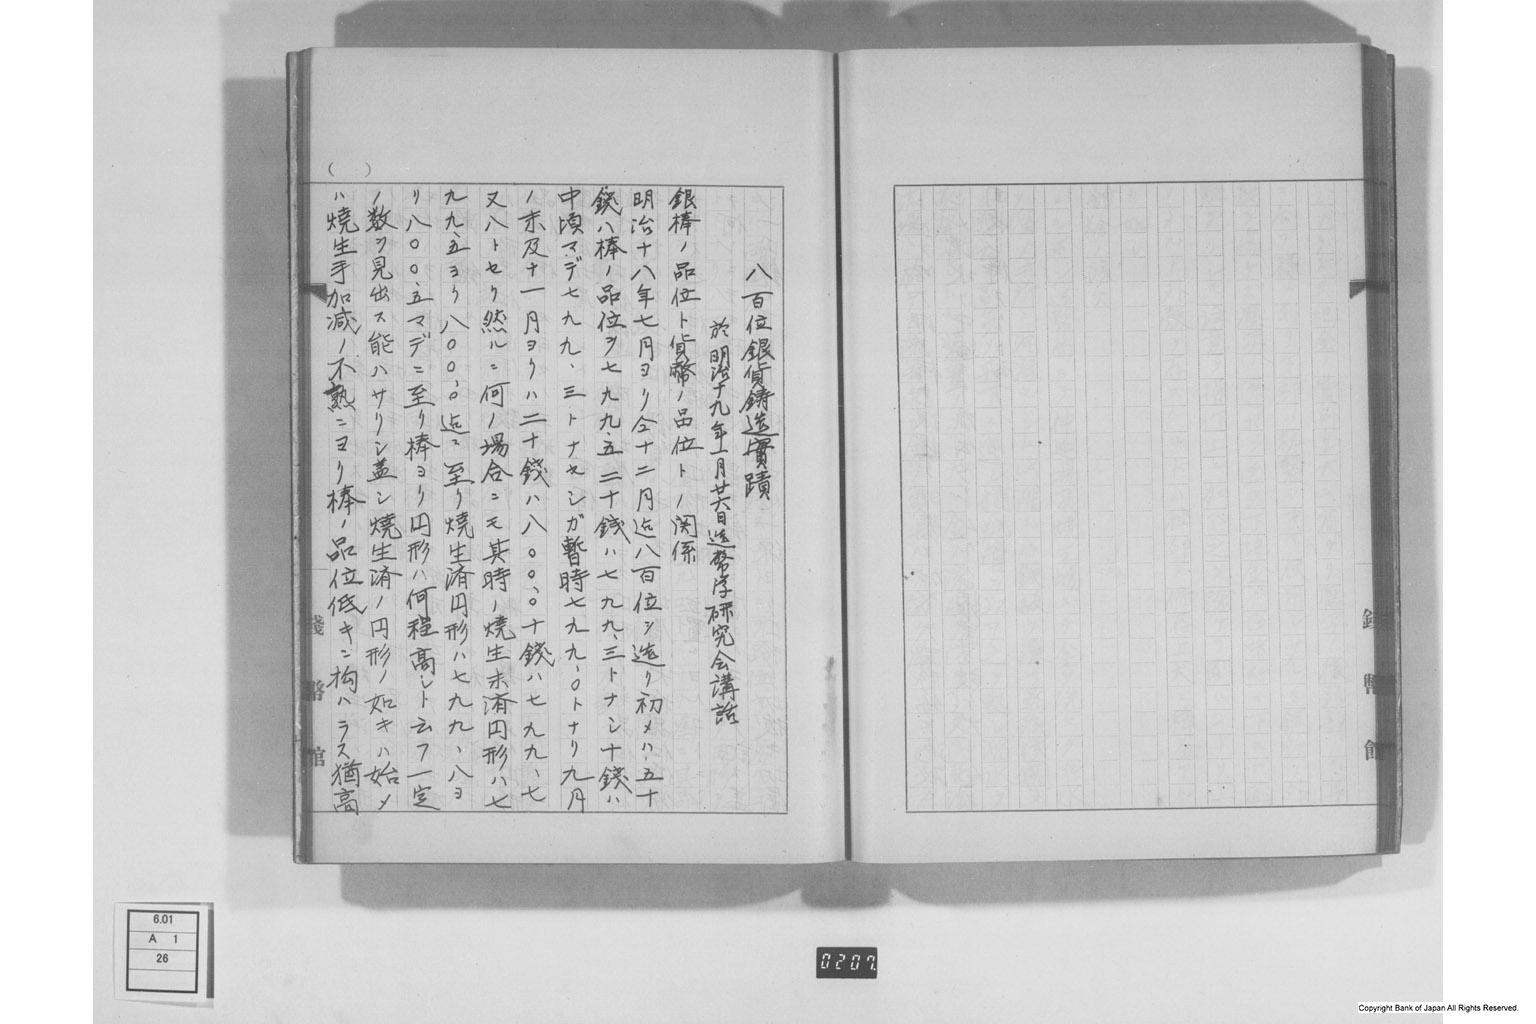 八百位銀貨鋳造實蹟
於明治十九年一月廿六日造幣学研究会講話
銀棒ノ品位ト貨幣ノ品位トノ関係
明治十八年七月ヨリ仝十二月迠八百位ヲ造リ初メハ五十
錢ハ棒ノ品位ヲ七九九、五二十錢ハ七九九、三トナシ十錢ハ
中頃マデ七九九、三トナセシガ暫時七九九、〇トナリ九月
ノ末及十一月ヨリハ二十錢ハ八〇〇、〇十錢ハ七九九、七
又ハトセリ然ルニ何ノ場合ニモ其時ノ燒生未済円形ハ七
九九、五ヨリ八〇〇、〇迠ニ至リ燒生済円形ハ七九九、八ヨ
リ八〇〇、五マデニ至リ棒ヨリ円形ハ何程高シト云フ一定
ノ数ヲ見出ス能ハサリシ蓋シ燒生済ノ円形ノ如キハ始メ
ハ燒生手加減ノ不熟ニヨリ棒ノ品位低キニ拘ハラス猶高
( )
錢幣館
錢幣館
6.01
A 1
26
0207
Copyright Bank of Japan All Rights Reserved.